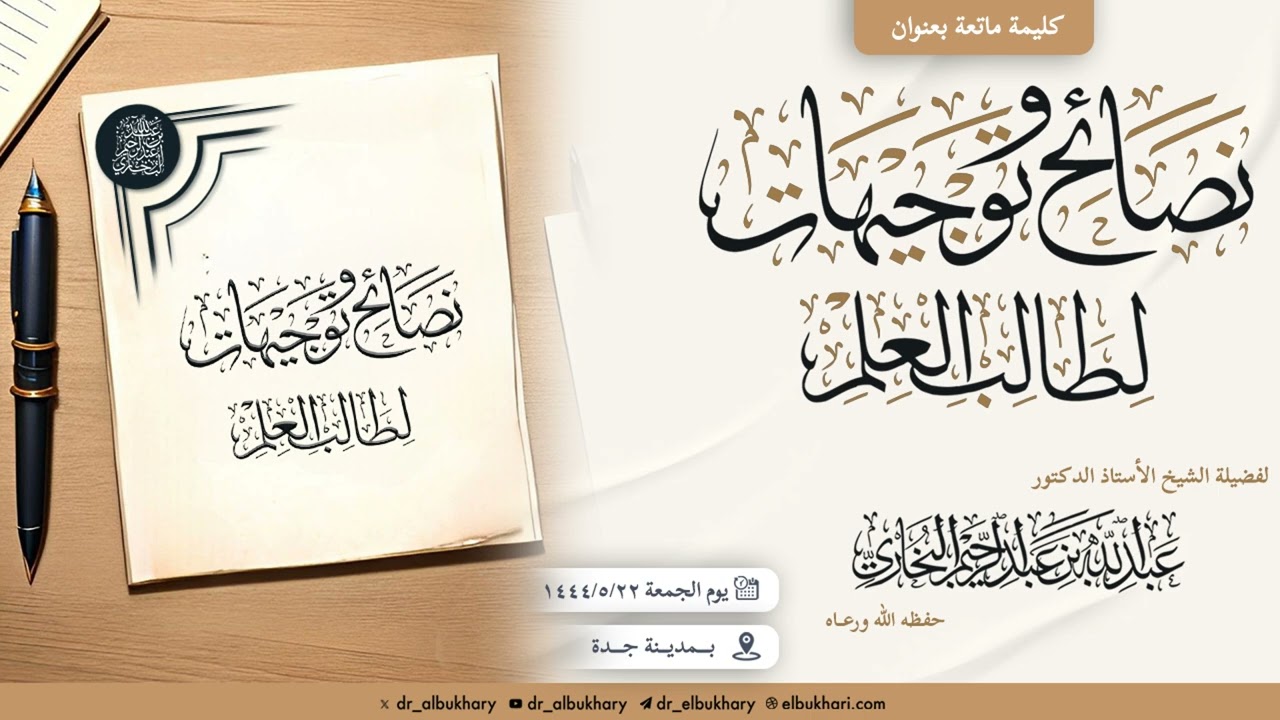 كليمة ماتعة بعنوان
نَصَائِحُ وَتَوْجِيهَات
لِطَالِبِ الْعِلْمِ
لفضيلة الشيخ الأستاذ الدكتور
عَبْدِ اللَّهِ بْنِ عَبْدِ الرَّحِيمِ الْبُخَارِيِّ
حفظه الله ورعـاه
يوم الجمعة ١٤٤٤/٥/٢٢
بــمديـنة جــدة
نَصَائِحُ وَتَوْجِيهَات
لِطَالِبِ الْعِلْمِ
dr_albukhary dr_albukhary dr_elbukhary elbukhari.com